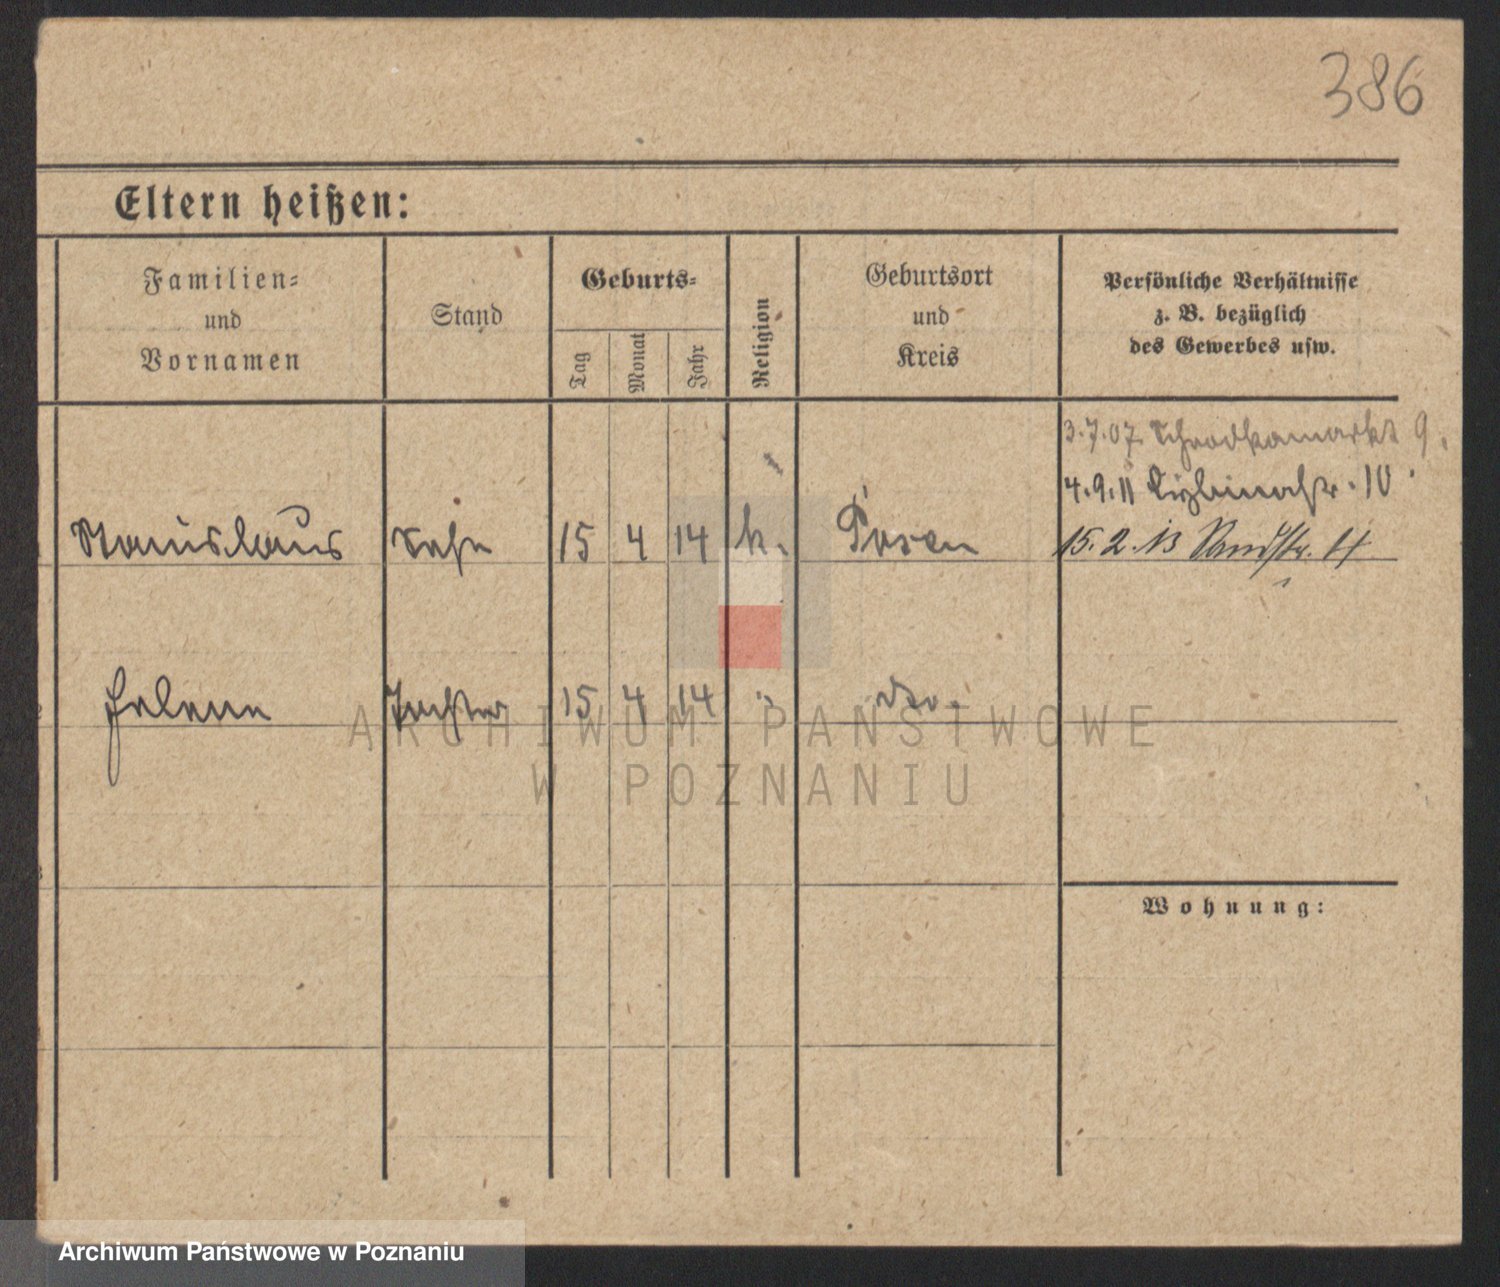 386
Eltern heißen:
Familien=
und
Vornamen
Stand
Geburts=
Tag
Monat
Jahr
Religion
Geburtsort
und
Kreis
Persönliche Verhältnisse
z. B. bezüglich
des Gewerbes usw.
3.7.07 Schrodkamarkt 9.
4.9.11 10.
Stanislaus Sohn 15 4 14 k. Posen 15.2.13
Helene Tochter 15 4 14 " do.
Wohnung:
ARCHIWUM PAŃSTWOWE
W POZNANIU
Archiwum Państwowe w Poznaniu